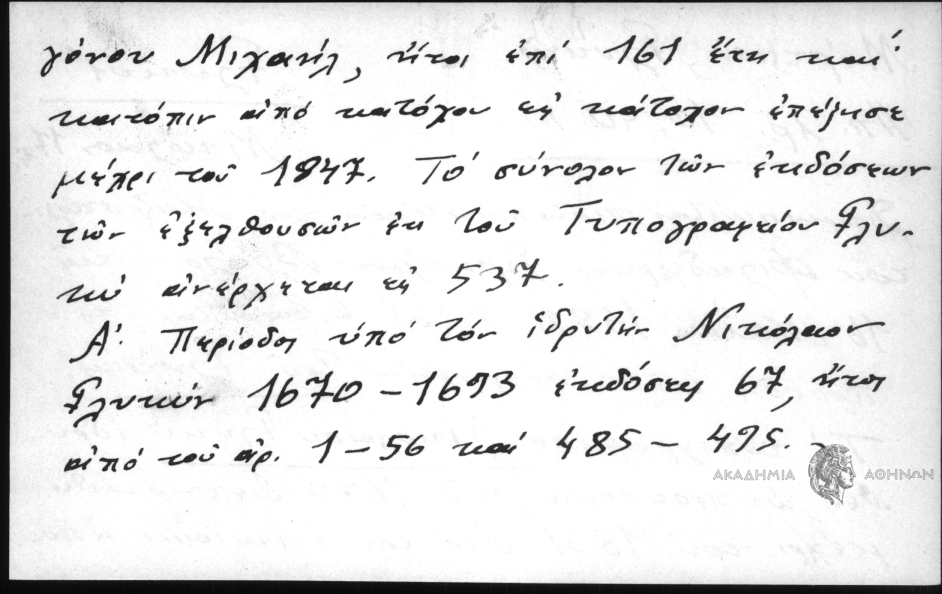 γόνου Μιχαήλ, ἤτοι ἐπί 161 ἔτη καί
κατόπιν ἀπό κατόχου εἰς κάτοχον ἐπέζησε
μέχρι τοῦ 1847. Τό σύνολον τῶν ἐκδόσεων
τῶν ἐξελθουσῶν ἐκ τοῦ Τυπογραφείου Γλυ-
κύ ἀνέρχεται εἰς 537.
Α΄. Περίοδος ὑπό τόν ἱδρυτήν Νικόλαον
Γλυκύν 1670 - 1693 ἐκδόσεις 67, ἤτοι
ἀπό τοῦ ἀρ. 1 - 56 καί 485 - 495.
ΑΚΑΔΗΜΙΑ ΑΘΗΝΩΝ